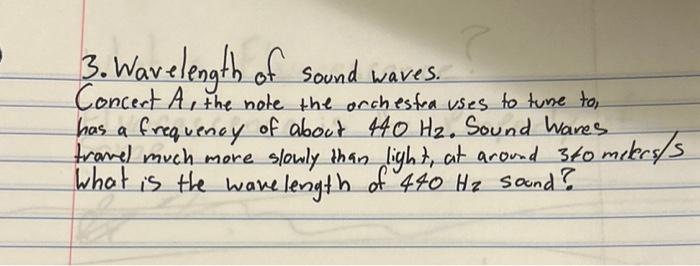 3. Wavelength of sound waves.
Concert A, the note the orchestra uses to tune to,
has a frequency of about 440 Hz. Sound Waves
travel much more slowly than light, at around 340 meters/s
What is the wavelength of 440 Hz sound?